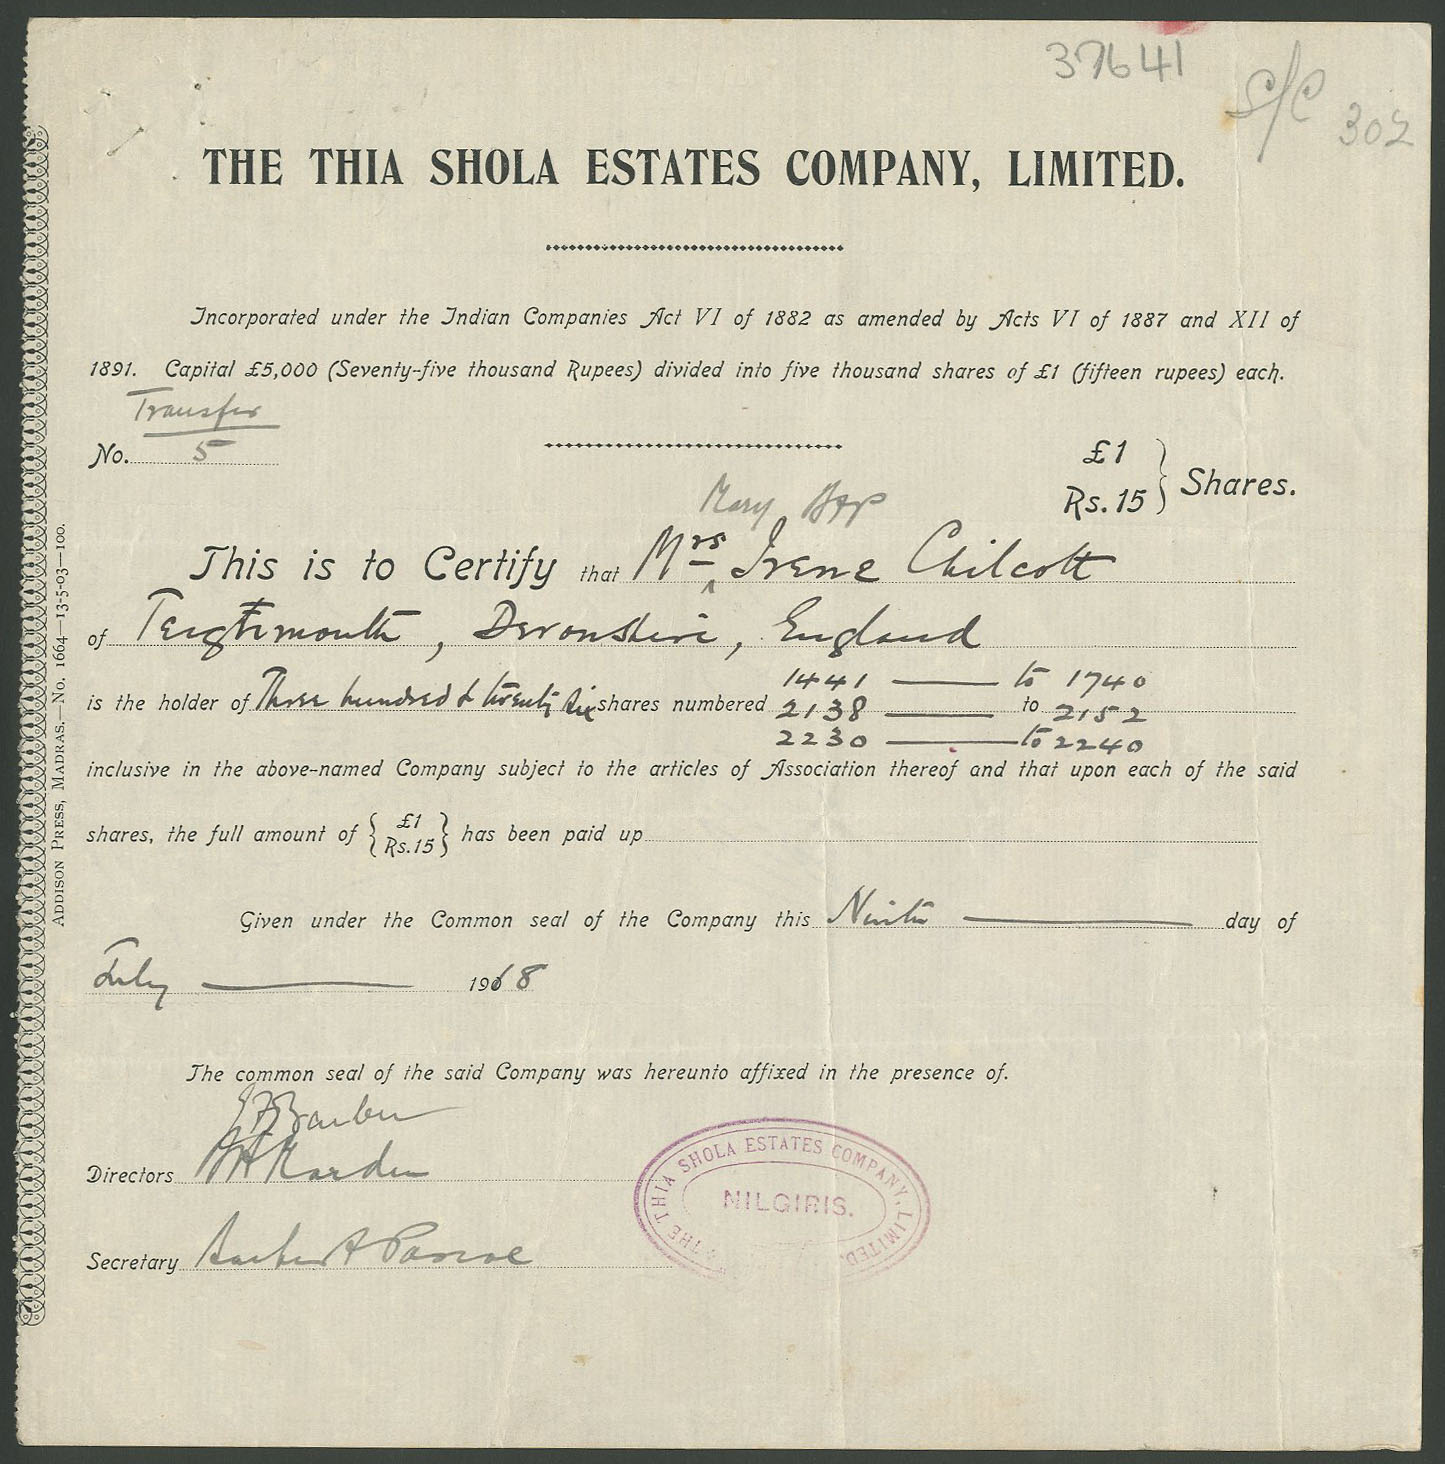 37641
S/C 302
THE THIA SHOLA ESTATES COMPANY, LIMITED.
Incorporated under the Indian Companies Act VI of 1882 as amended by Acts VI of 1887 and XII of
1891. Capital £5,000 (Seventy-five thousand Rupees) divided into five thousand shares of £1 (fifteen rupees) each.
Transfer
No. 5
£1
Rs. 15 } Shares.
Mary
This is to Certify that Mrs Irene Chilcott
of Teignmouth, Devonshire, England
1441 — to 1740
is the holder of Three hundred & twenty six shares numbered 2138 — to 2152
2230 — to 2240
inclusive in the above-named Company subject to the articles of Association thereof and that upon each of the said
shares, the full amount of { £1 Rs. 15 } has been paid up
Given under the Common seal of the Company this Ninth — day of
July — 1908
The common seal of the said Company was hereunto affixed in the presence of.
Directors
Secretary
THE THIA SHOLA ESTATES COMPANY, LIMITED.
NILGIRIS.
ADDISON PRESS, MADRAS.—No. 1664—13-5-03—100.